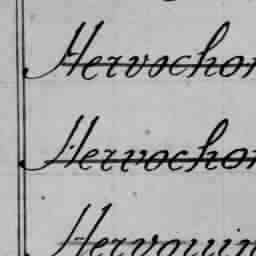 Hervochon
Hervochon
Hervouin